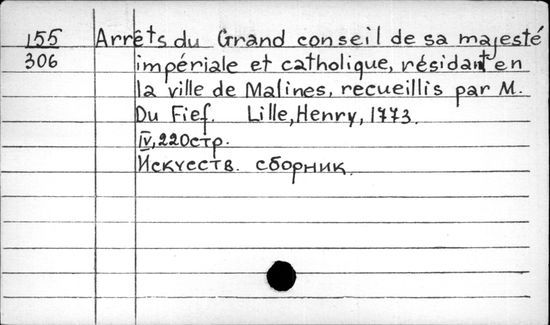 155 Arrêts du Grand conseil de sa majesté
306 impériale et catholique, résidant en
la ville de Malines, recueillis par M.
Du Fief. Lille, Henry, 1773.
IV, 220стр.
Искусств. сборник.